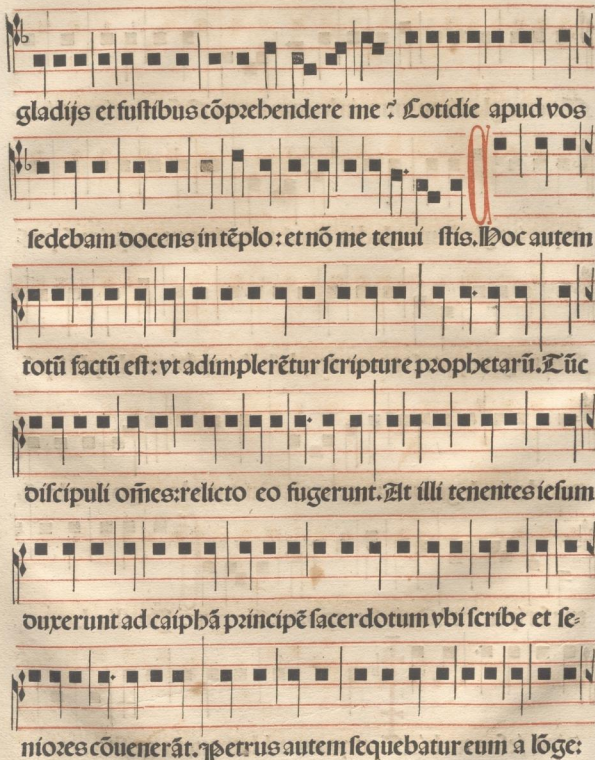 gladijs et fustibus cōprehendere me? Cotidie apud vos
sedebam docens in tēplo: et nō me tenui stis. Hoc autem
totū factū est: vt adimplerētur scripture prophetarū. Tūc
discipuli om̄es: relicto eo fugerunt. At illi tenentes iesum
duxerunt ad caiphā principē sacerdotum vbi scribe et se-
niores cōuenerāt. Petrus autem sequebatur eum a lōge: